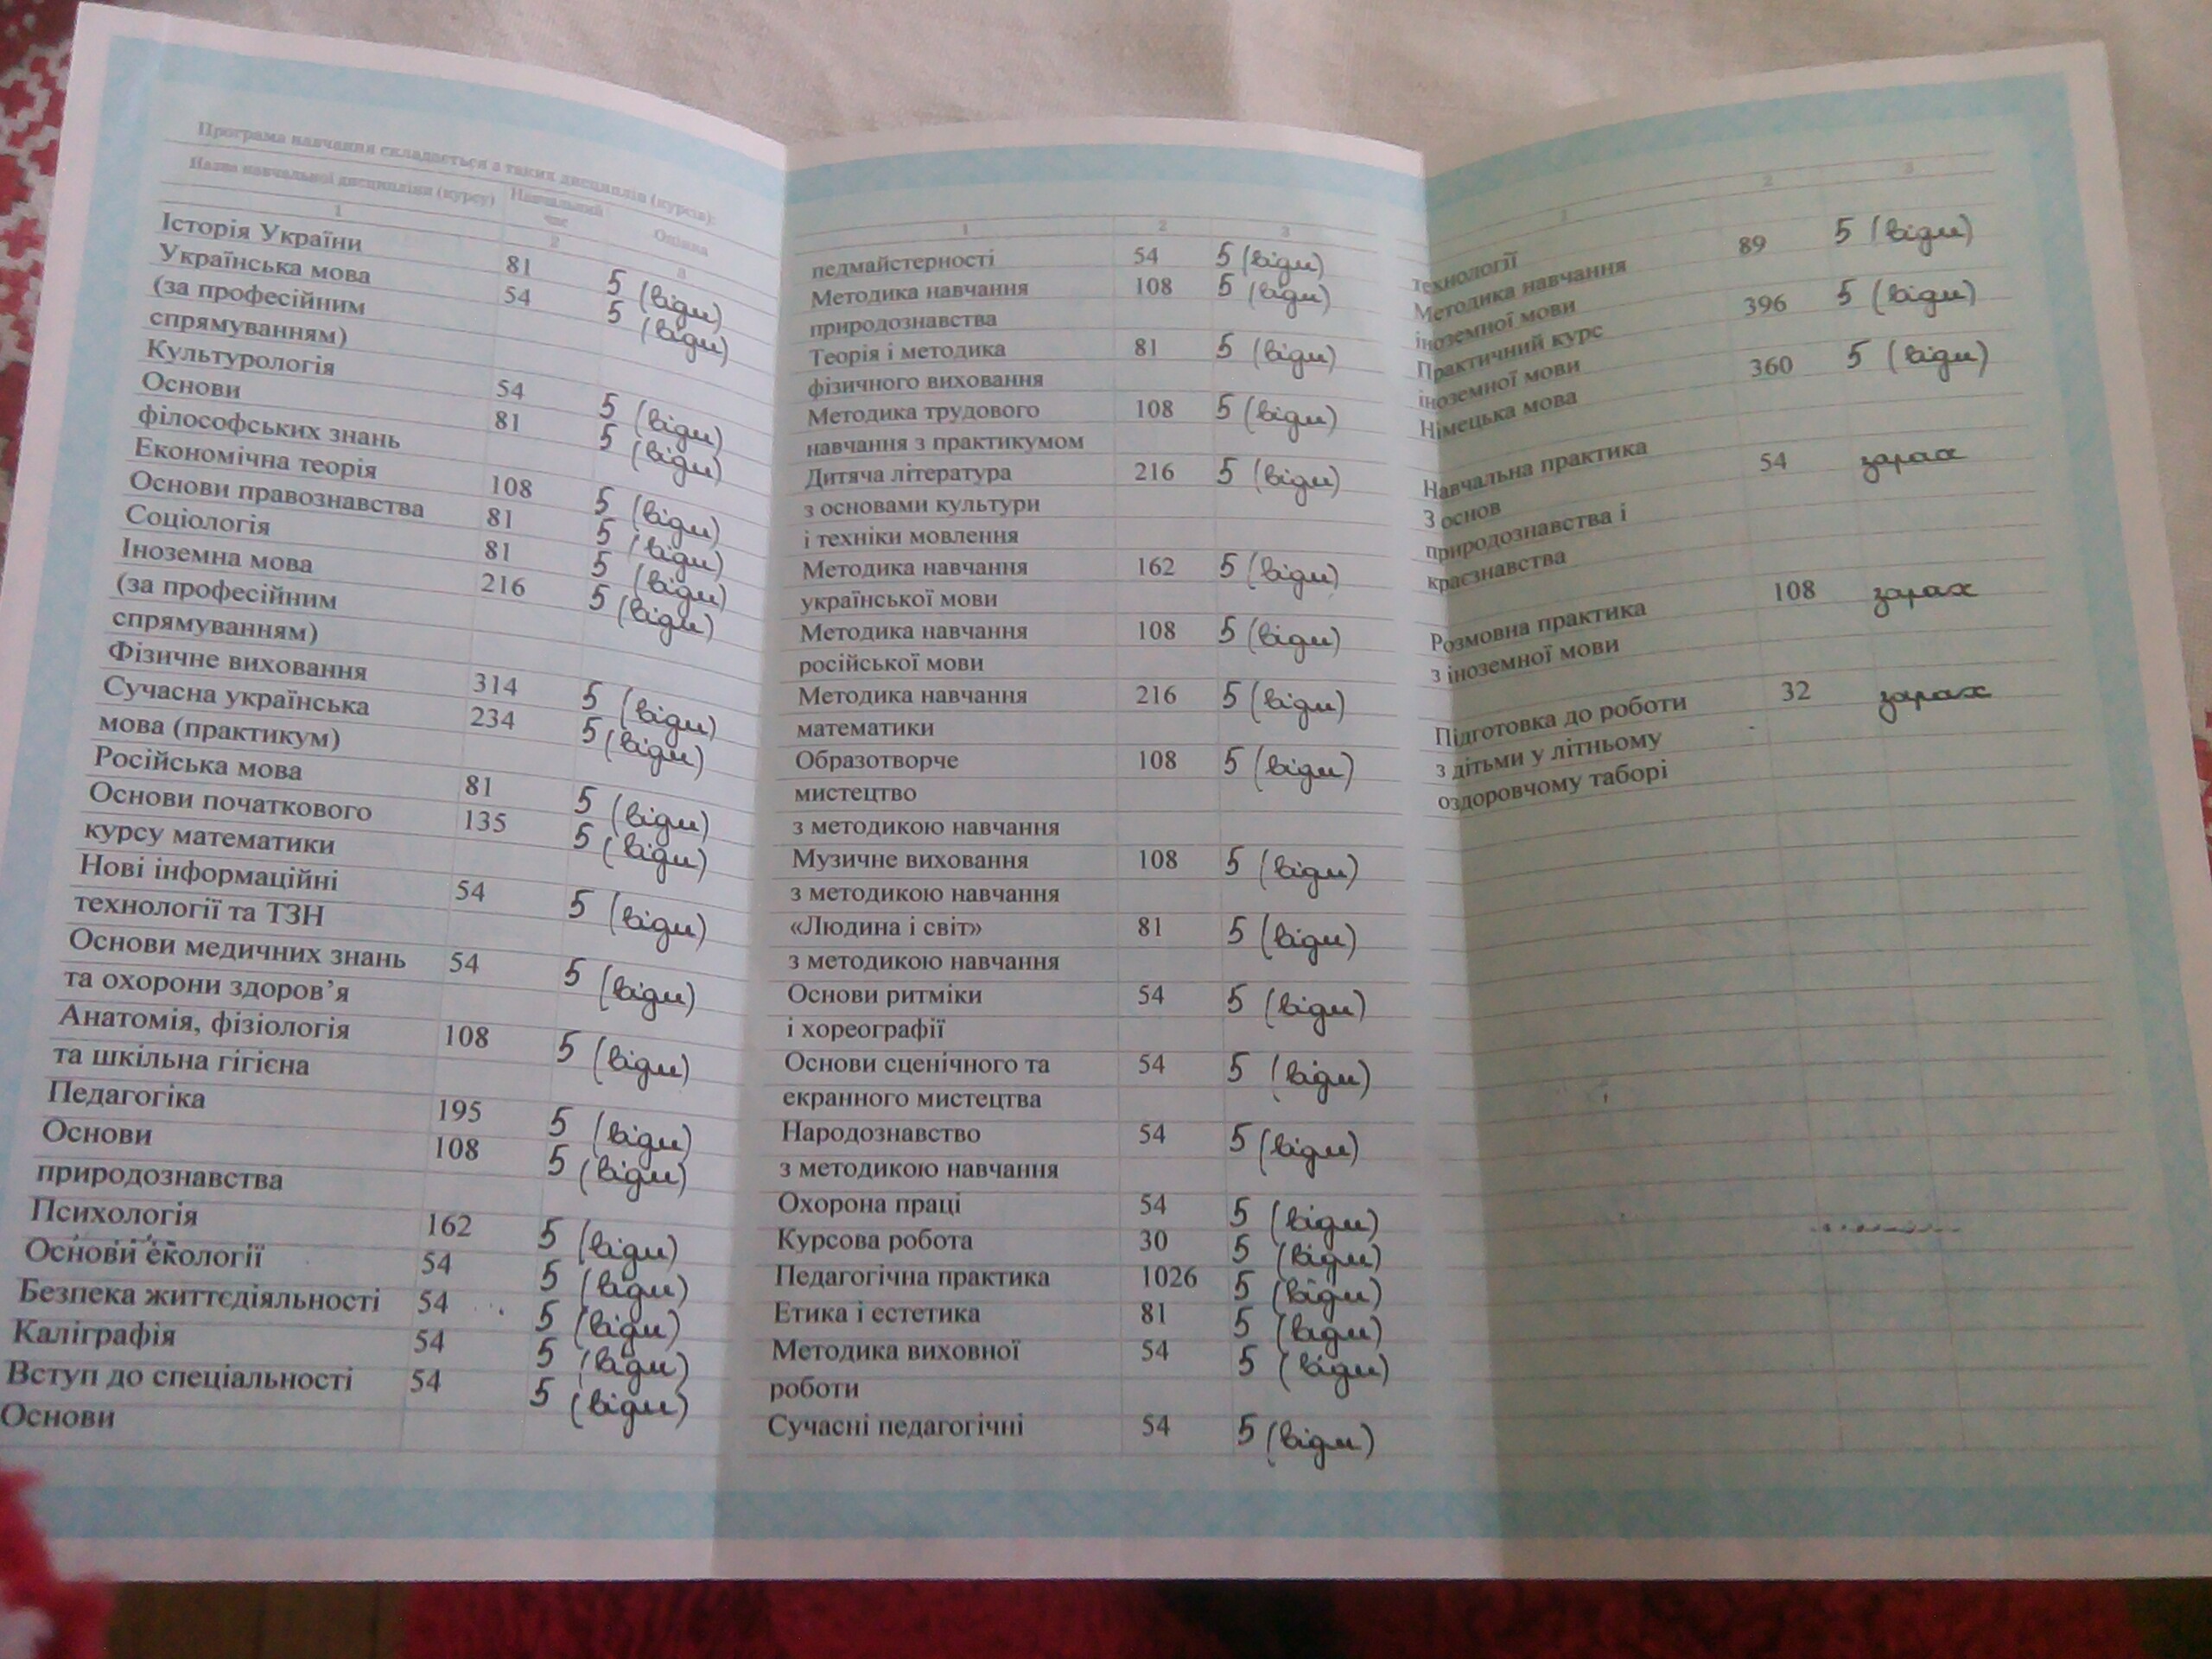 Програма навчання складається з таких дисциплін (курсів):
Назва навчальної дисципліни (курсу) Навчальний час Оцінка
1 2 3
Історія України 81 5 (відм)
Українська мова 54 5 (відм)
(за професійним
спрямуванням)
Культурологія 54 5 (відм)
Основи 81 5 (відм)
філософських знань
Економічна теорія 108 5 (відм)
Основи правознавства 81 5 (відм)
Соціологія 81 5 (відм)
Іноземна мова 216 5 (відм)
(за професійним
спрямуванням)
Фізичне виховання 314 5 (відм)
Сучасна українська 234 5 (відм)
мова (практикум)
Російська мова 81 5 (відм)
Основи початкового 135 5 (відм)
курсу математики
Нові інформаційні 54 5 (відм)
технології та ТЗН
Основи медичних знань 54 5 (відм)
та охорони здоров’я
Анатомія, фізіологія 108 5 (відм)
та шкільна гігієна
Педагогіка 195 5 (відм)
Основи 108 5 (відм)
природознавства
Психологія 162 5 (відм)
Основи екології 54 5 (відм)
Безпека життєдіяльності 54 5 (відм)
Каліграфія 54 5 (відм)
Вступ до спеціальності 54 5 (відм)
Основи
1 2 3
педмайстерності 54 5 (відм)
Методика навчання 108 5 (відм)
природознавства
Теорія і методика 81 5 (відм)
фізичного виховання
Методика трудового 108 5 (відм)
навчання з практикумом
Дитяча література 216 5 (відм)
з основами культури
і техніки мовлення
Методика навчання 162 5 (відм)
української мови
Методика навчання 108 5 (відм)
російської мови
Методика навчання 216 5 (відм)
математики
Образотворче 108 5 (відм)
мистецтво
з методикою навчання
Музичне виховання 108 5 (відм)
з методикою навчання
«Людина і світ» 81 5 (відм)
з методикою навчання
Основи ритміки 54 5 (відм)
і хореографії
Основи сценічного та 54 5 (відм)
екранного мистецтва
Народознавство 54 5 (відм)
з методикою навчання
Охорона праці 54 5 (відм)
Курсова робота 30 5 (відм)
Педагогічна практика 1026 5 (відм)
Етика і естетика 81 5 (відм)
Методика виховної 54 5 (відм)
роботи
Сучасні педагогічні 54 5 (відм)
1 2 3
технології
Методика навчання 89 5 (відм)
іноземної мови
Практичний курс 396 5 (відм)
іноземної мови
Німецька мова 360 5 (відм)
Навчальна практика
З основ 54 зарах
природознавства і
краєзнавства
Розмовна практика 108 зарах
з іноземної мови
Підготовка до роботи 32 зарах
з дітьми у літньому
оздоровчому таборі